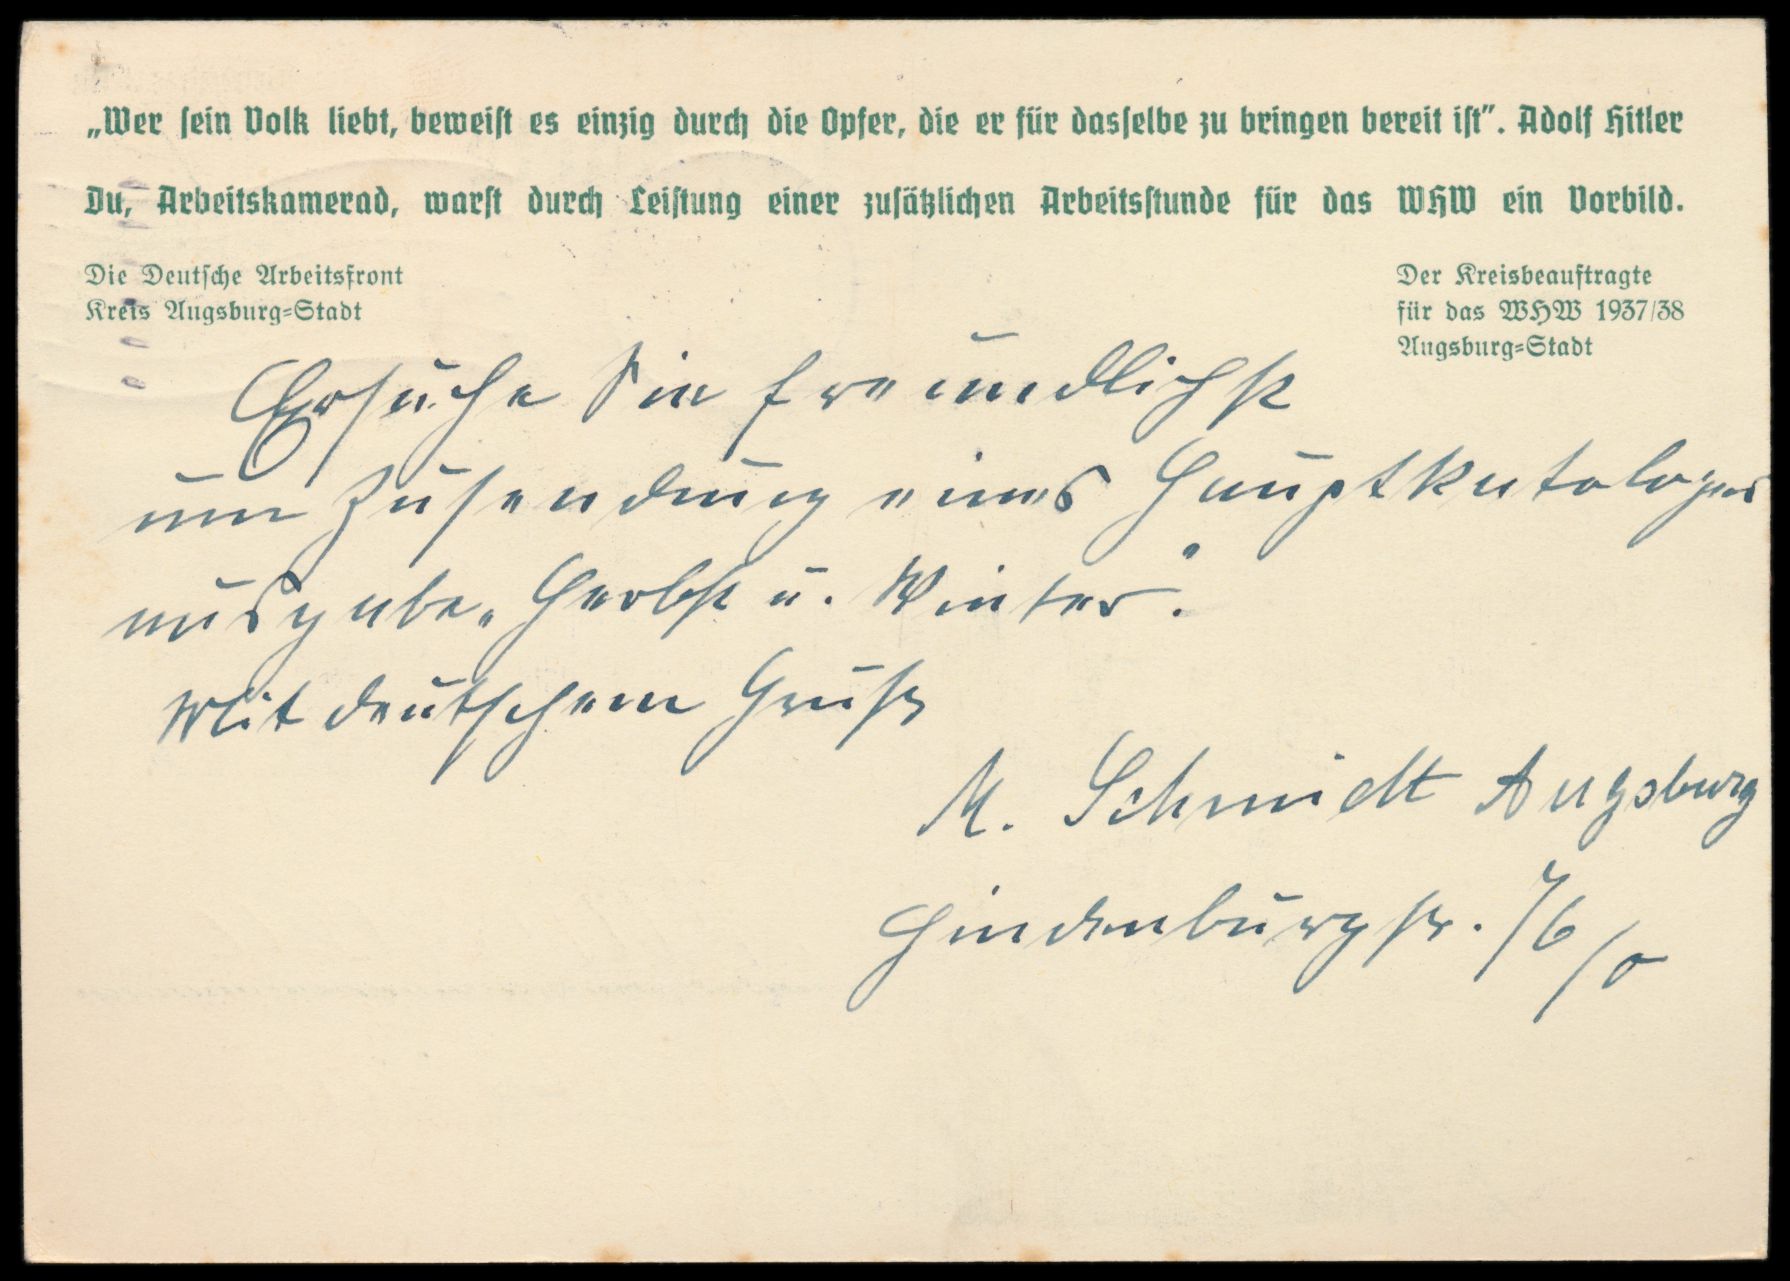 „Wer sein Volk liebt, beweist es einzig durch die Opfer, die er für dasselbe zu bringen bereit ist". Adolf Hitler
Du, Arbeitskamerad, warst durch Leistung einer zusätzlichen Arbeitsstunde für das WHW ein Vorbild.
Die Deutsche Arbeitsfront
Kreis Augsburg=Stadt
Der Kreisbeauftragte
für das WHW 1937/38
Augsburg=Stadt
Ersuche Sie freundlichst
um Zusendung eines Hauptkataloges
ausgabe „Herbst u. Winter".
Mit deutschem Gruß
M. Schmidt Augsburg
Hindenburgstr. 76/0